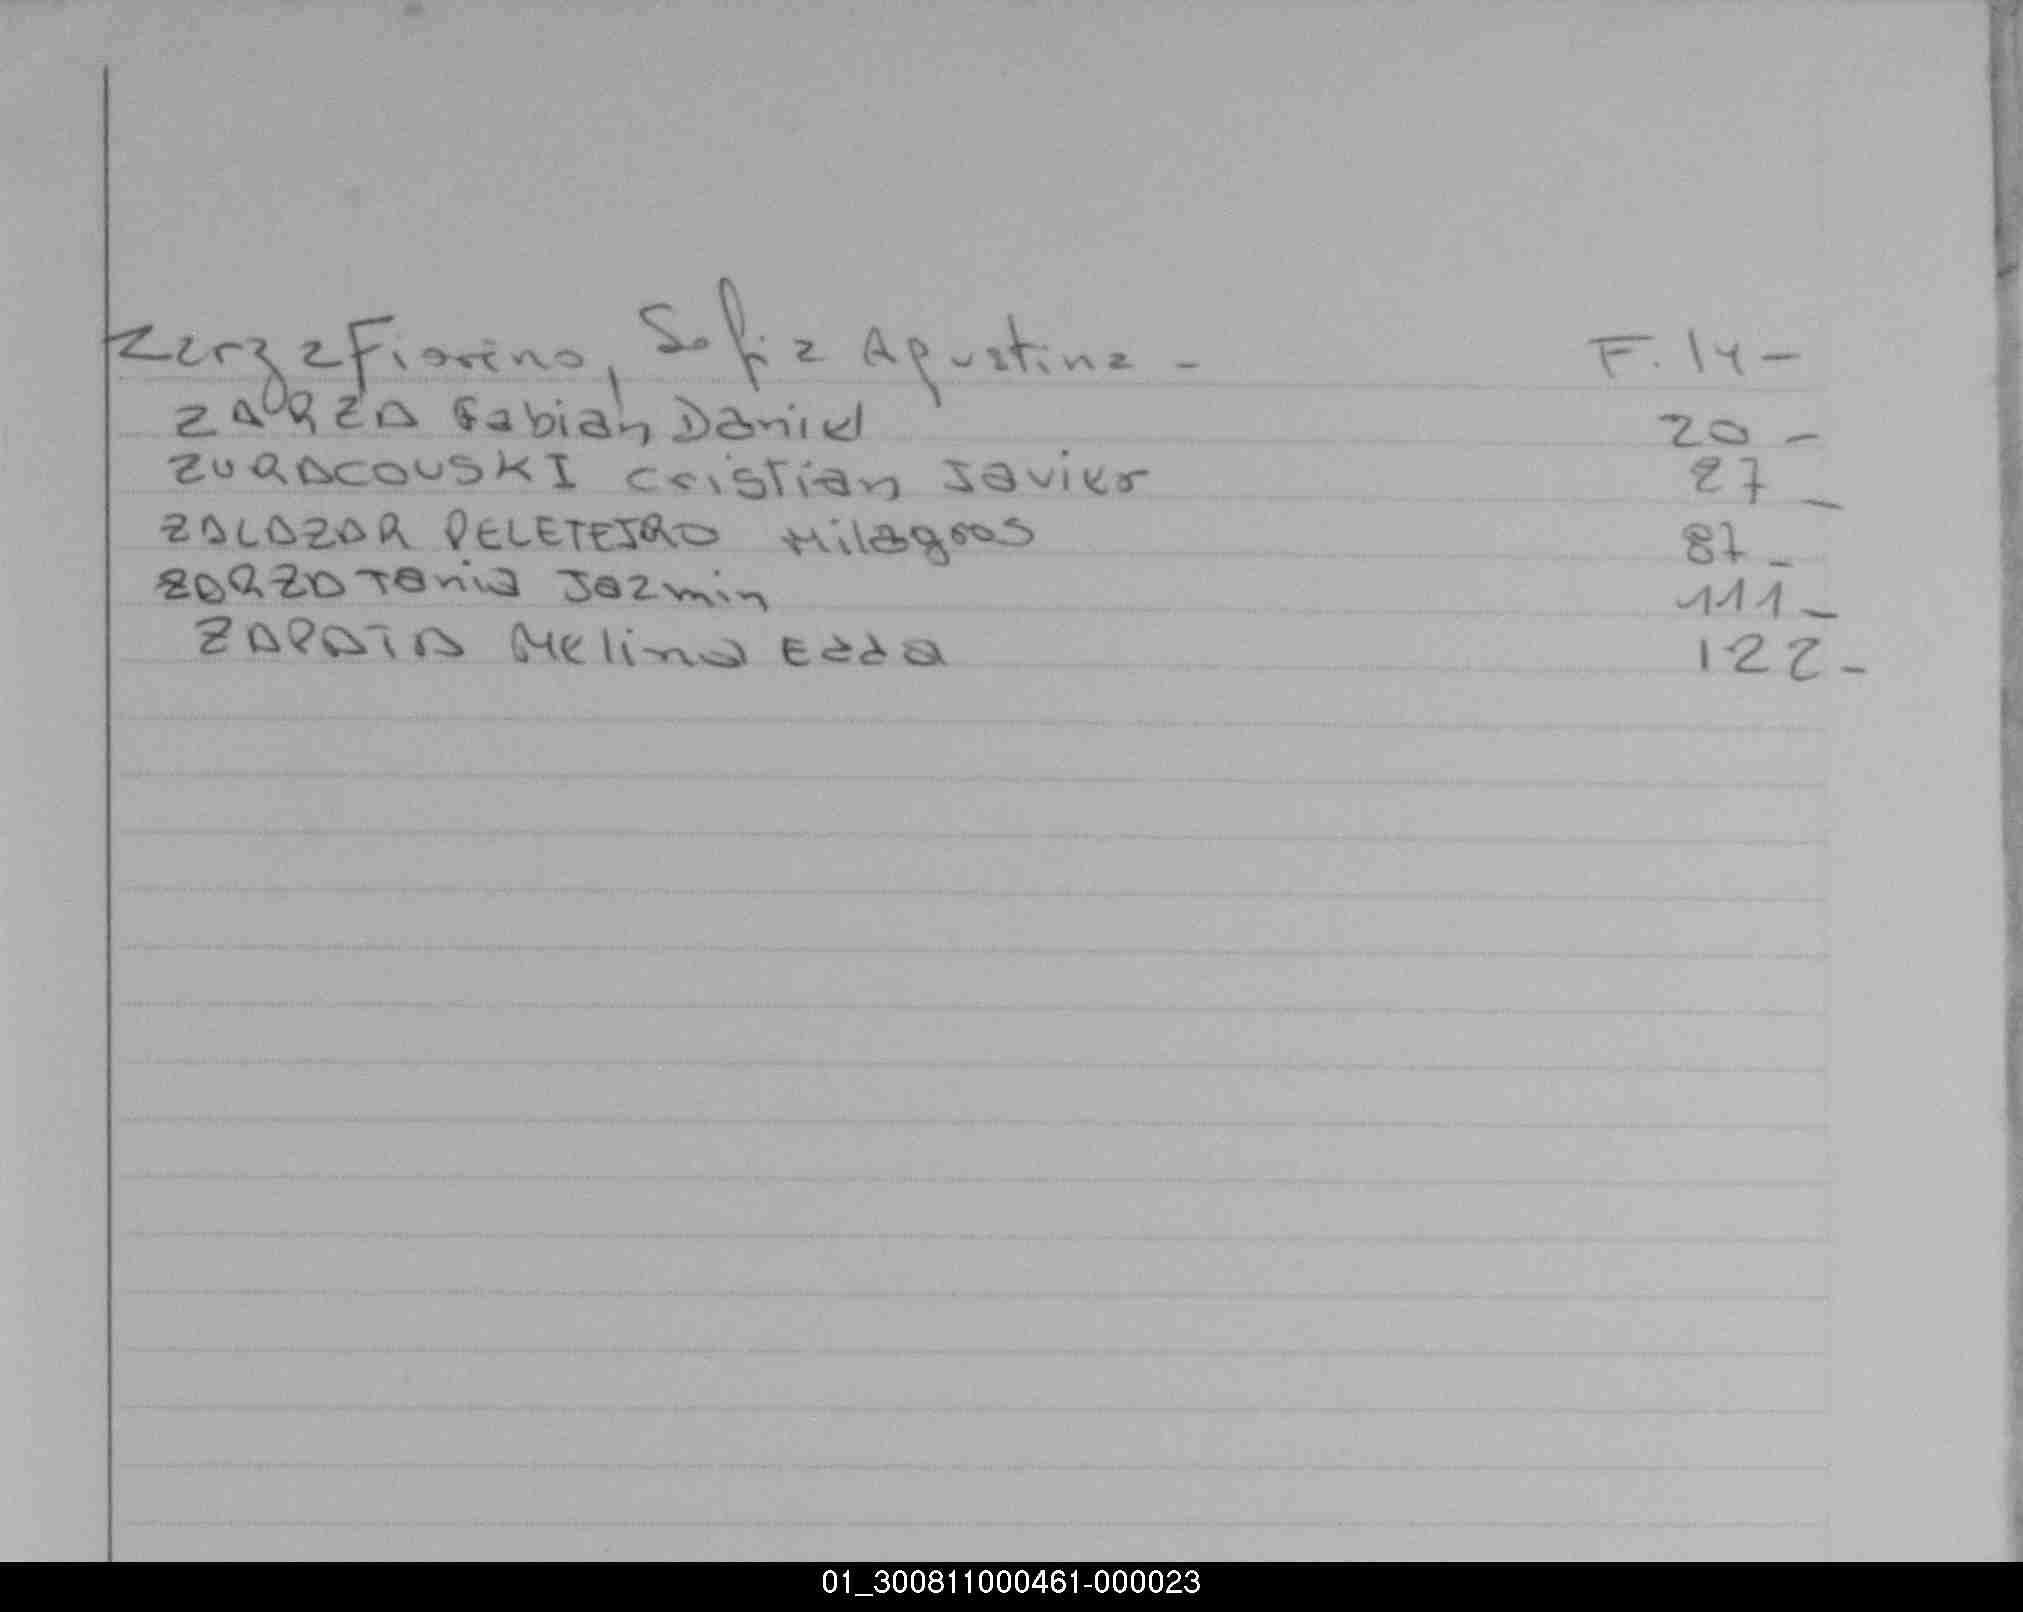 Zarza Fiorino, Sofia Agustina - F. 14 -
ZARZA Fabian Daniel 20 -
ZURACOUSKI Cristian Javier 27 -
ZALAZAR PELETEIRO Milagros 87 -
ZARZA Tania Jazmin 111 -
ZAPATA Melina Edda 122 -
01_300811000461-000023